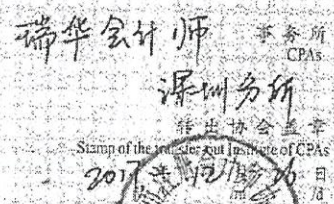 瑞华会计师 事务所
CPAs
深圳分所
转出协会盖章
Stamp of the transfer-out Institute of CPAs
2017 年 日
/d